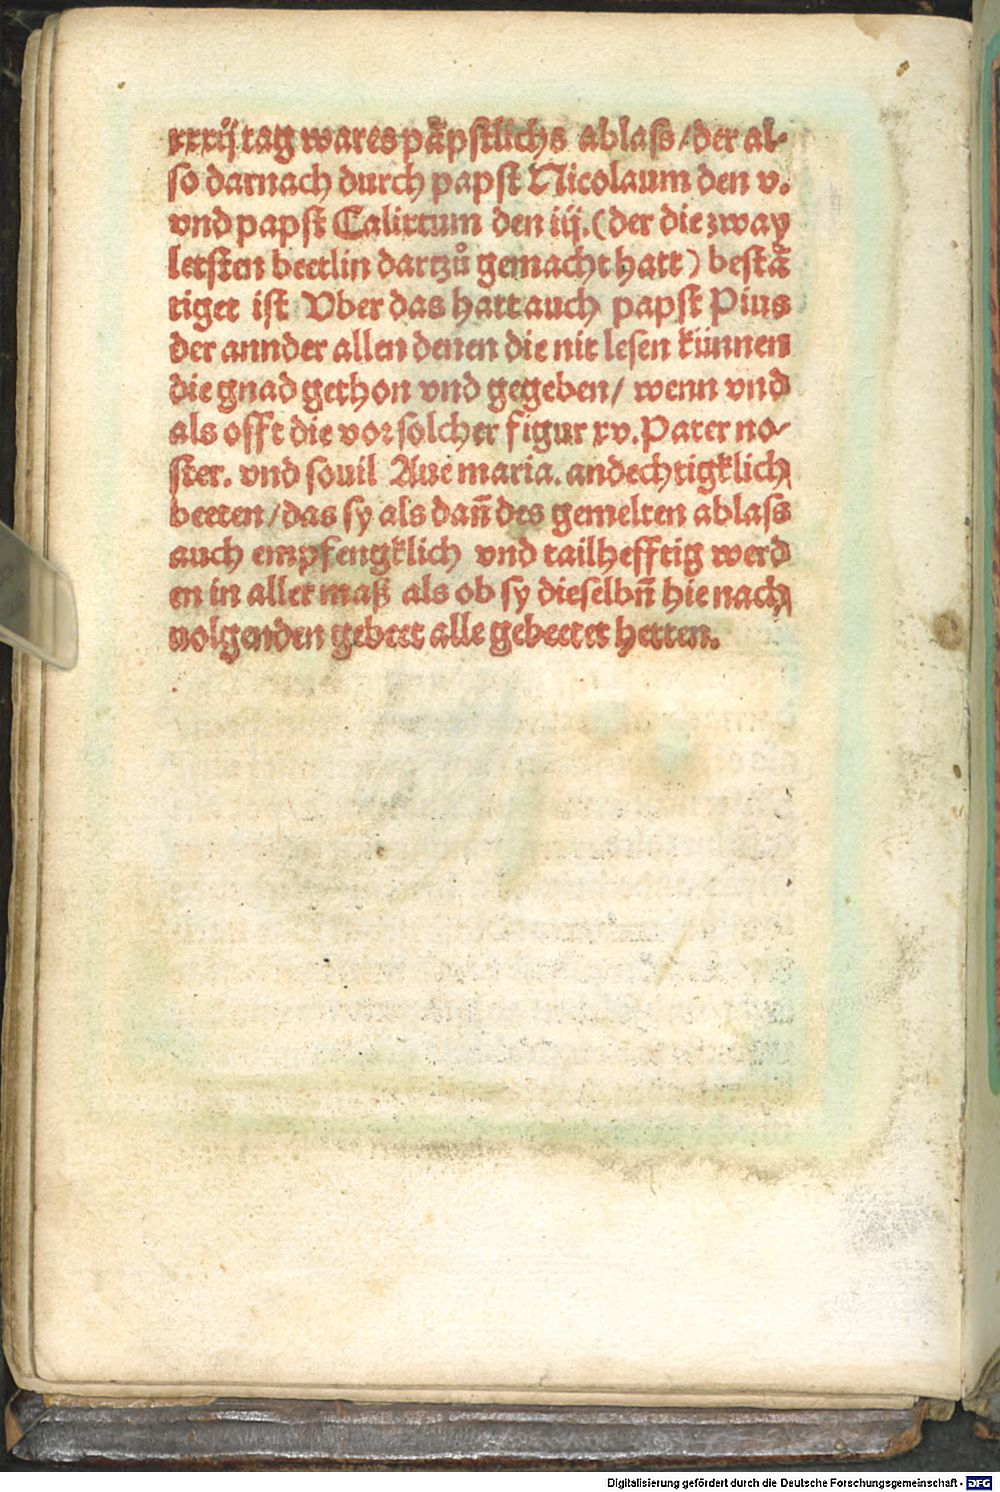 xxxij tag wares päpstlichs ablass/der al-
so darnach durch papst Nicolaum den v.
vnd papst Calixtum den iij.(der die zway
letsten beetlin dartzů gemacht hatt) bestā
tiget ist Vber das hatt auch papst Pius
der annder allen denen die nit lesen künnen
die gnad gethon vnd gegeben/ wenn vnd
als offt die vor solcher figur xv. Pater no-
ster. vnd souil Aue maria. andechtigklich
beeten/das sy als dañ des gemelten ablass
auch empfengklich vnd tailhefftig werd
en in aller maß als ob sy dieselbñ hie nach
uolgenden gebeet alle gebeetet hetten.
Digitalisierung gefördert durch die Deutsche Forschungsgemeinschaft - DFG